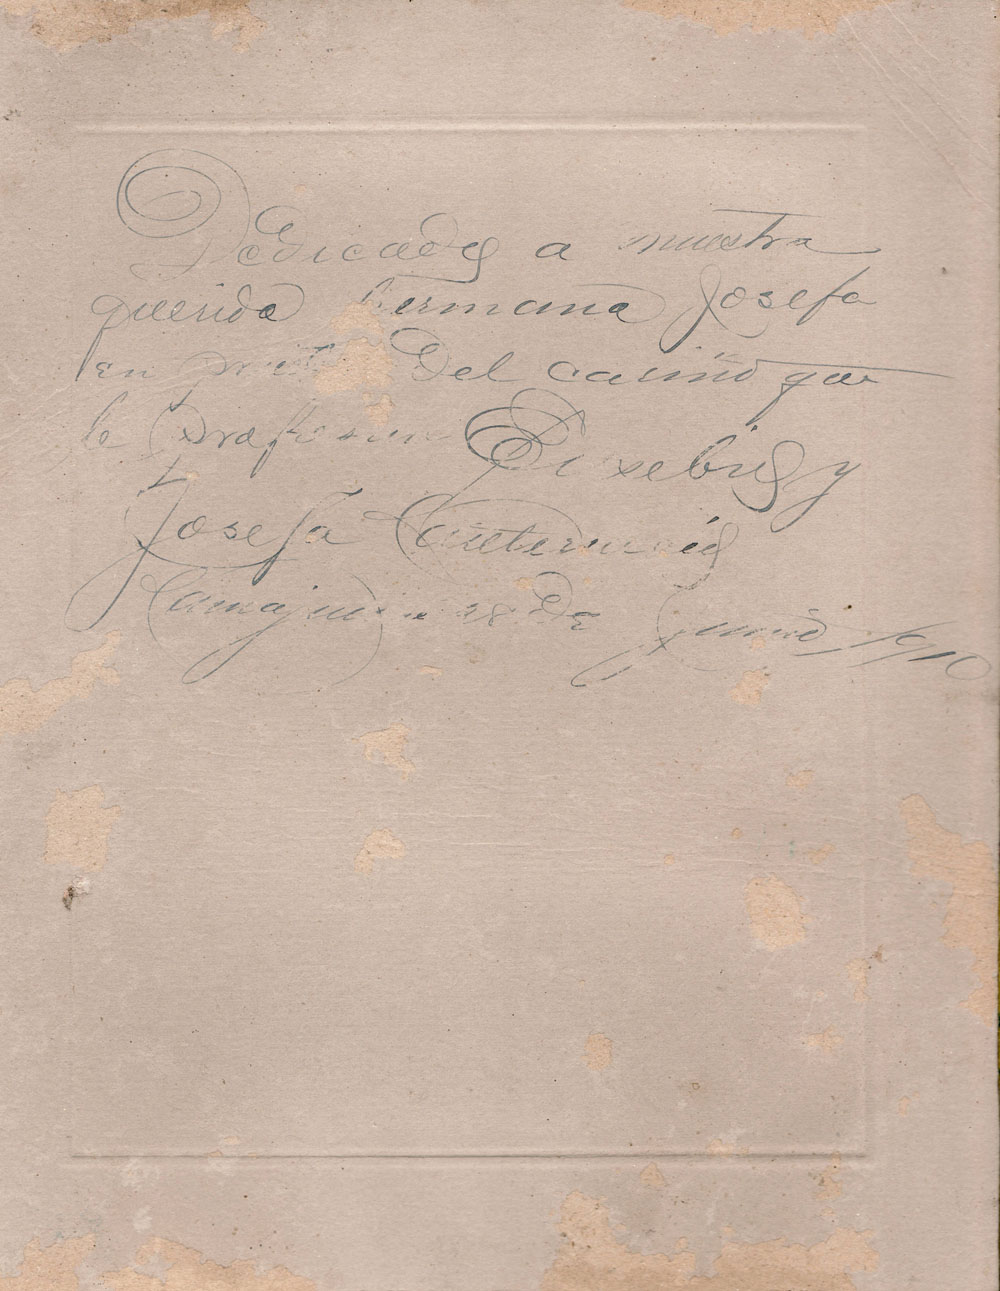 Dedicado a nuestra
querida hermana Josefa
en del cariño que
le profesamos Eusebio y
Josefa
Camajuaní 28 de Junio 1910